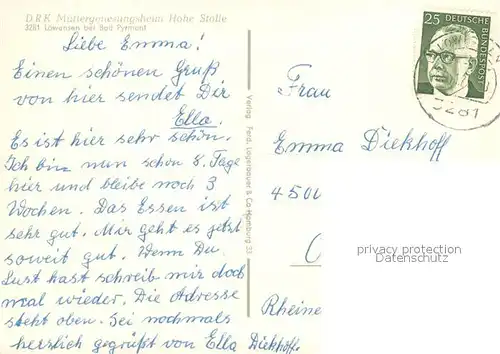 D.R.K Müttergenesungsheim Hohe Stolle
3281 Löwensen bei Bad Pyrmont
Liebe Emma!
Einen schönen Gruß
von hier sendet Dir
Ella.
Es ist hier sehr schön.
Ich bin nun schon 8. Tage
hier und bleibe noch 3
Wochen. Das Essen ist
sehr gut. Mir geht es jetzt
soweit gut. Wenn Du
Lust hast schreib mir doch
mal wieder. Die Adresse
steht oben. Sei nochmals
herzlich gegrüßt von Ella Diekhoff.
Verlag Ferd. Lagerbauer & Co Hamburg 33
25 DEUTSCHE BUNDESPOST
3281
Frau
Emma Diekhoff
4500
Rheine
privacy protection
Datenschutz